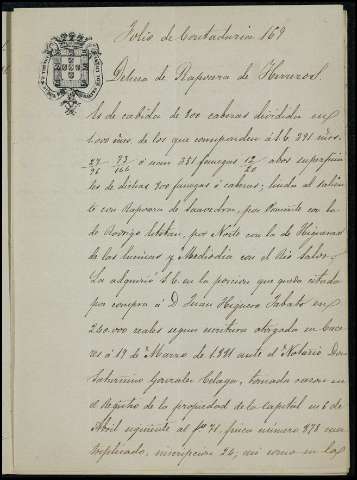 Folio de Contaduria 169
Dehesa de Raposera de Herreros.
Es de cabida de 800 cabezas dividida en
1.000 mrs. de los que corresponden á S.E. 291 mrs.
27/96 73/166 ó sean 231 fanegas 12/20 abos superficia
les de dichas 800 fanegas ó cabezas; linda al salien
te con Raposera de Saavedra, por Poniente con la
de Rodrigo por Norte con la de Higueras
de las y Mediodia con el Rio Salor.
La adquirió S.E. en la porcion que queda citada
por compra á D. Juan Higuero Zabala en
260.000 reales segun escritura otorgada en Cace
res á 19 de Marzo de 1.881 ante el Notario Don
Saturnino Gonzalez Celaya, tomada razon en
el Registro de la propiedad de la capital en 6 de
Abril siguiente al fº 71, finca número 878
triplicado, inscripcion 26; asi como en la